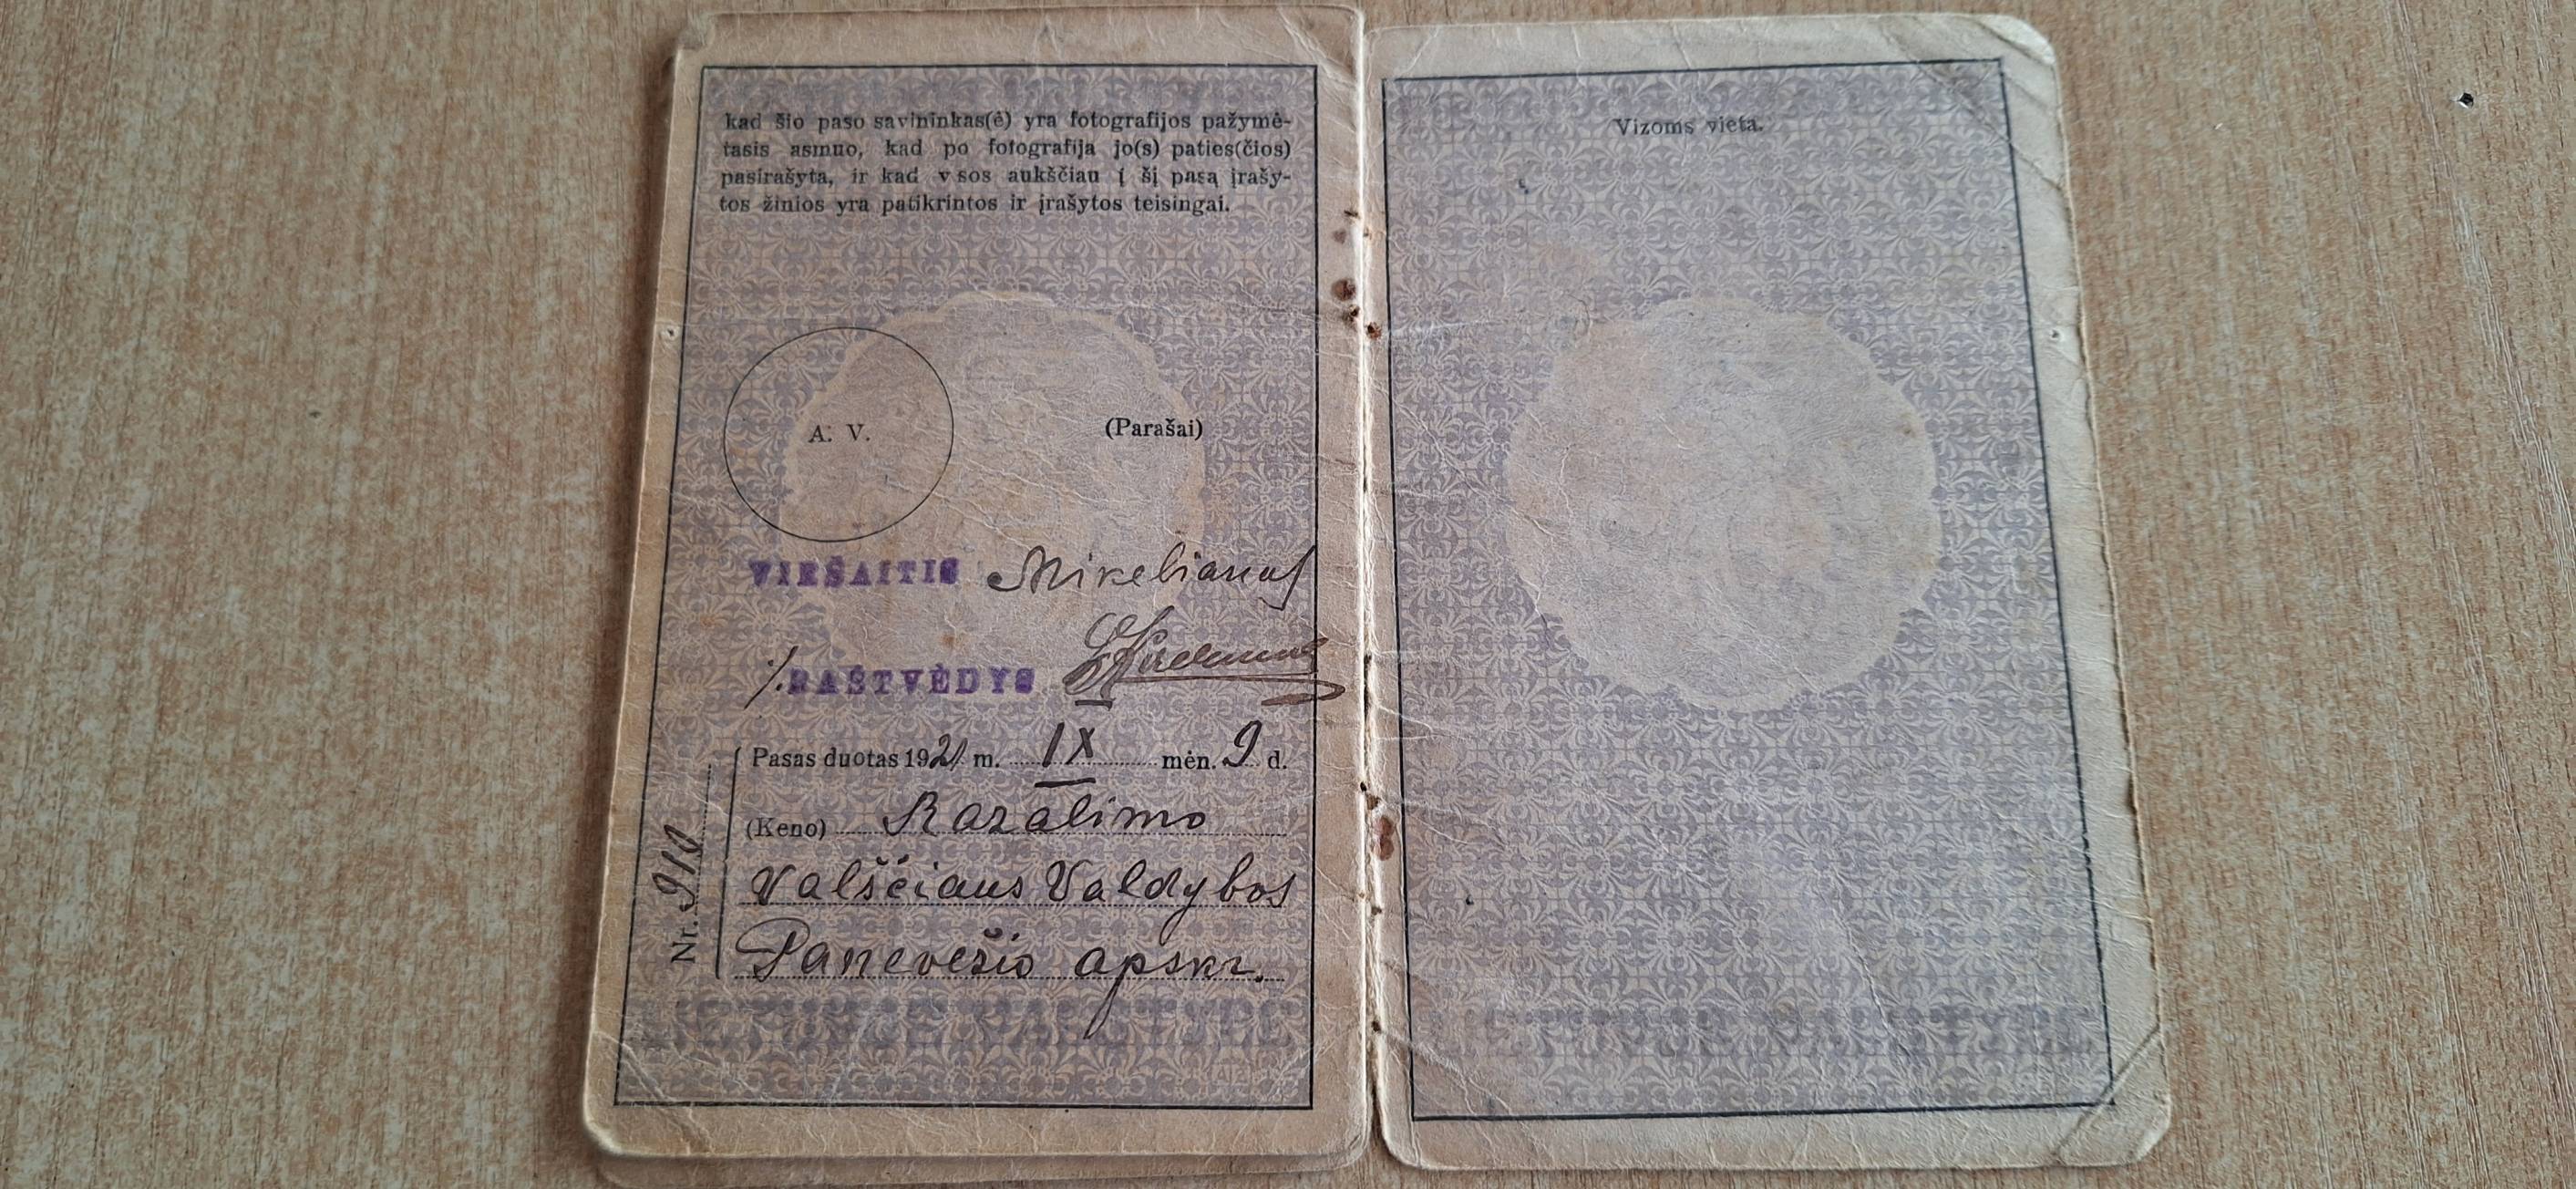 kad šio paso savininkas(ė) yra fotografijos pažymė-
tasis asmuo, kad po fotografija jo(s) paties(čios)
pasirašyta, ir kad v sos aukščiau į šį pasą įrašy-
tos žinios yra patikrintos ir įrašytos teisingai.
A. V.
(Parašai)
VIRŠAITIS
RAŠTVĖDYS
Pasas duotas 1921 m. IX mėn. 9 d.
(Keno) Razalimo
Valščiaus Valdybos
Panevežio apskr.
Nr. 910
LIETUVOS VALSTYBĖ
Vizoms vieta.
LIETUVOS VALSTYBĖ